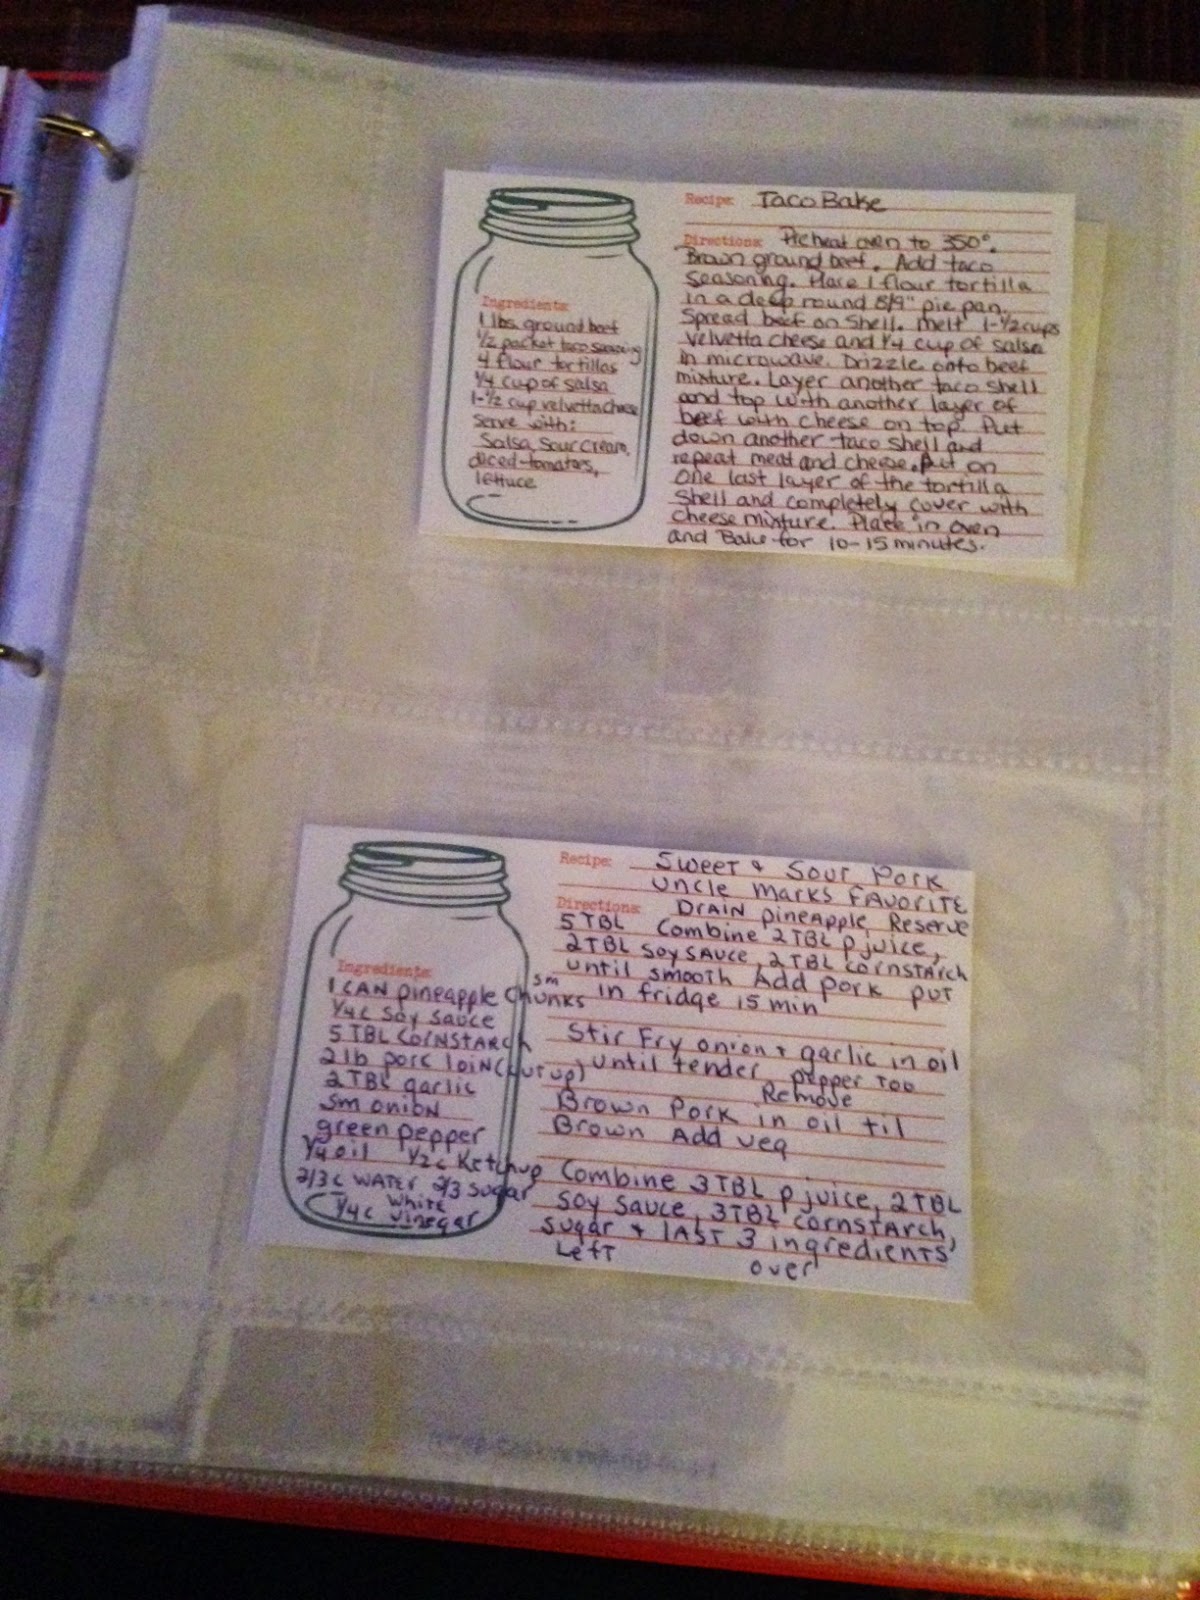 Recipe: Taco Bake
Directions: Preheat oven to 350°.
Brown ground beef. Add taco
Seasoning. Place 1 flour tortilla
in a deep round 8/9" pie pan.
Spread beef on shell. Melt 1-1/2 cups
Velvetta cheese and 1/4 cup of salsa
in microwave. Drizzle onto beef
mixture. Layer another taco shell
and top with another layer of
beef with cheese on top. Put
down another taco shell and
repeat meat and cheese. Put on
one last layer of the tortilla
Shell and completely cover with
Cheese mixture. Place in oven
and Bake for 10-15 minutes.
Ingredients:
1 lbs. ground beef
1/2 packet taco seasoning
4 flour tortillas
1/4 cup of salsa
1-1/2 cup velvetta cheese
Serve with:
Salsa, Sour Cream,
diced-tomatoes,
lettuce
Recipe: Sweet & Sour Pork
Uncle Marks Favorite
Directions: Drain pineapple, Reserve
5 TBL Combine 2 TBL p juice,
2 TBL soy sauce, 2 TBL cornstarch
until smooth Add pork put
in fridge 15 min
Stir Fry onion & garlic in oil
until tender pepper too
Remove
Brown Pork in oil til
Brown Add veg
Combine 3 TBL p juice, 2 TBL
soy sauce, 3 TBL cornstarch,
sugar & last 3 ingredients
Left over
Ingredients:
1 can pineapple sm chunks
1/4c soy sauce
5 TBL cornstarch
2 lb pork loin (cut up)
2 TBL garlic
sm onion
green pepper
1/4 oil 1/2c Ketchup
2/3c water 2/3 sugar
1/4c white vinegar